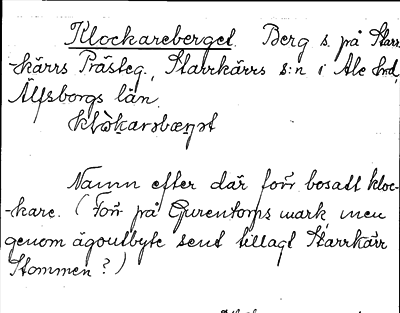 Klockareberget. Berg s. på Starr-
-kärrs Prästeg., Starrkärrs s:n i Ale hrd,
Älfsborgs län.
Namn efter där förr bosatt kloc-
-kare. (Förr på Gurentorps mark, men
genom ägoutbyte sent tillagt Starrkärr
Stommen?)